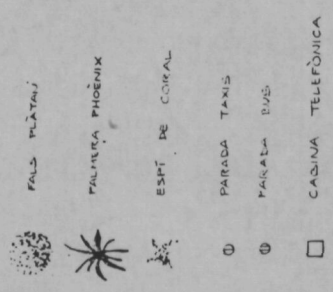 FALS PLÀTAN
PALMERA PHOÈNIX
ESPÍ DE CORAL
PARADA TAXIS
PARADA BUS
CABINA TELEFÒNICA